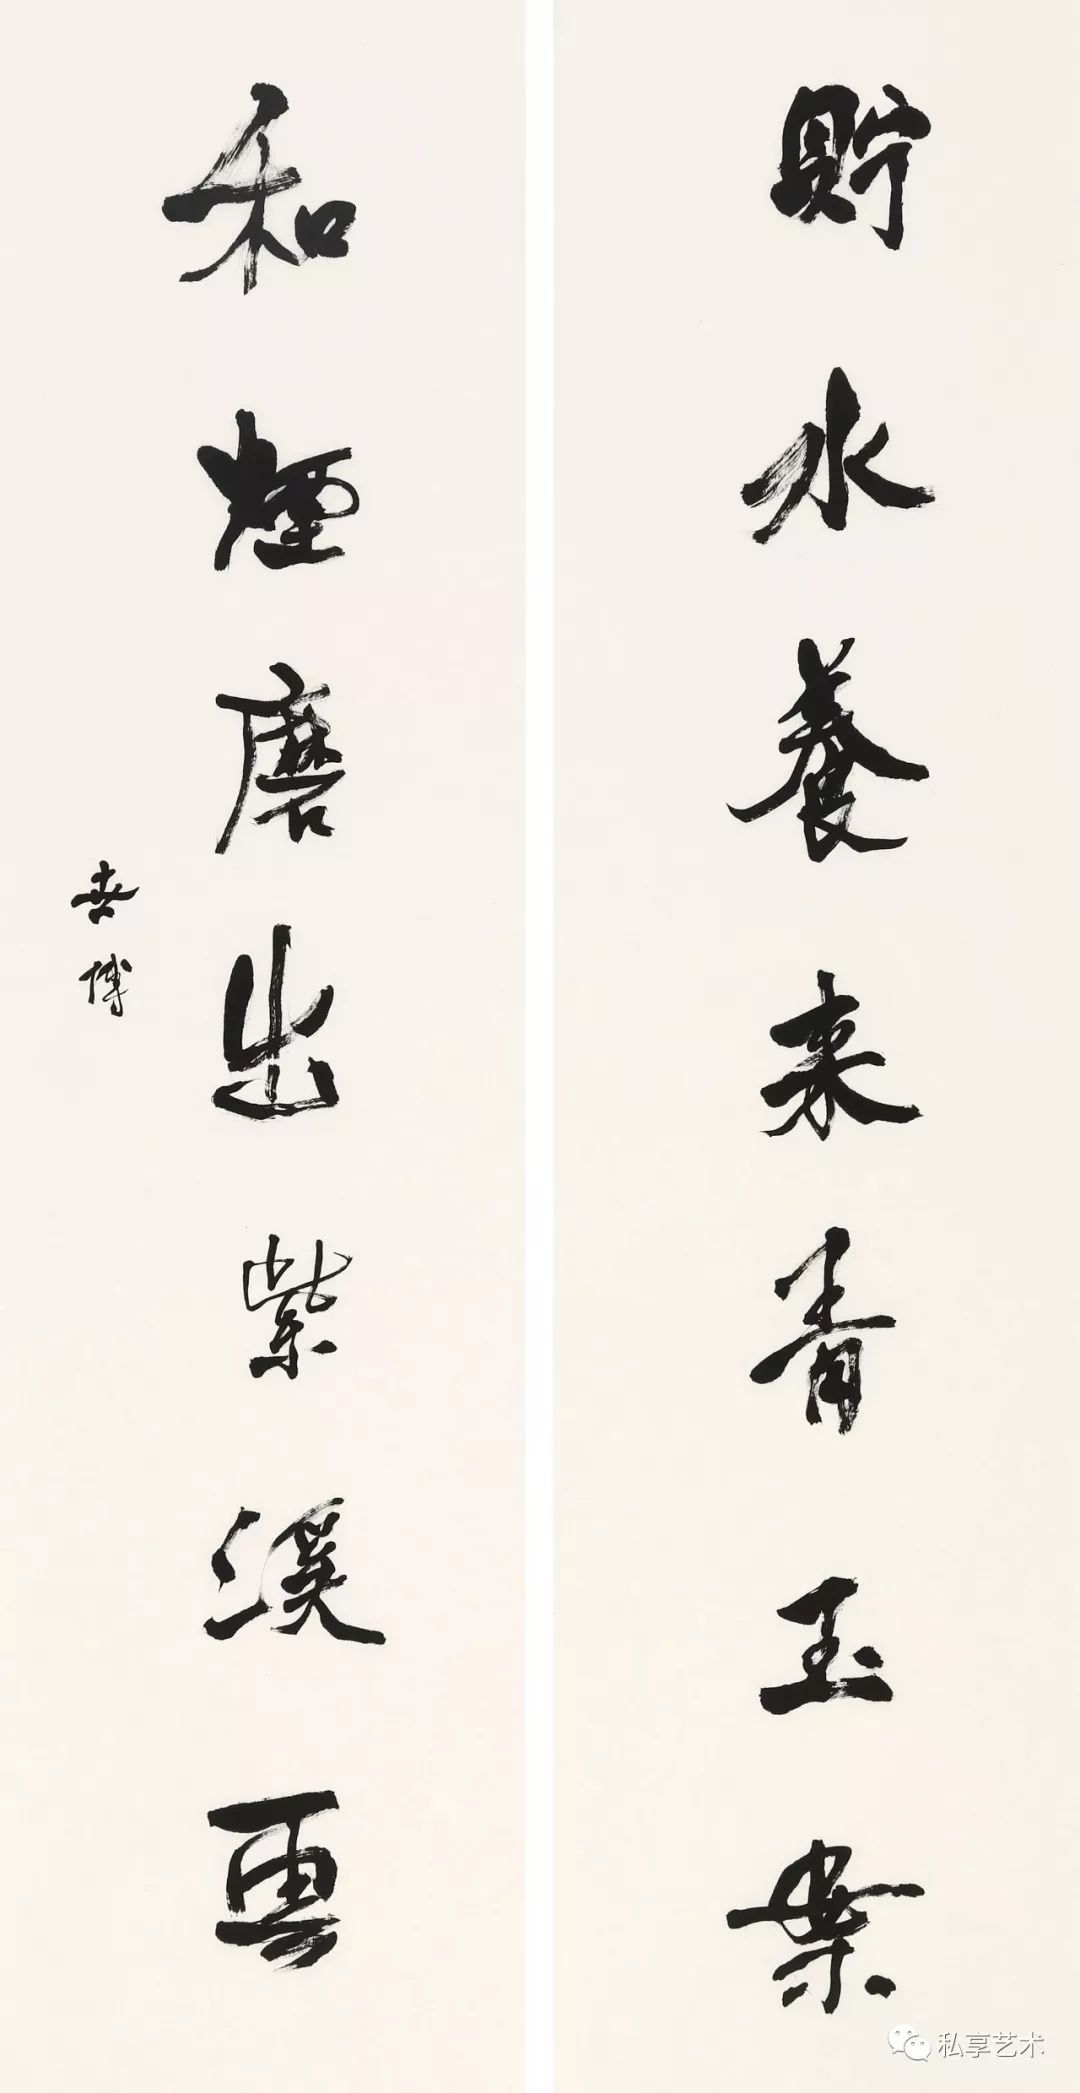 貯水養来青玉案
和煙磨出紫溪雲
世博
私享艺术